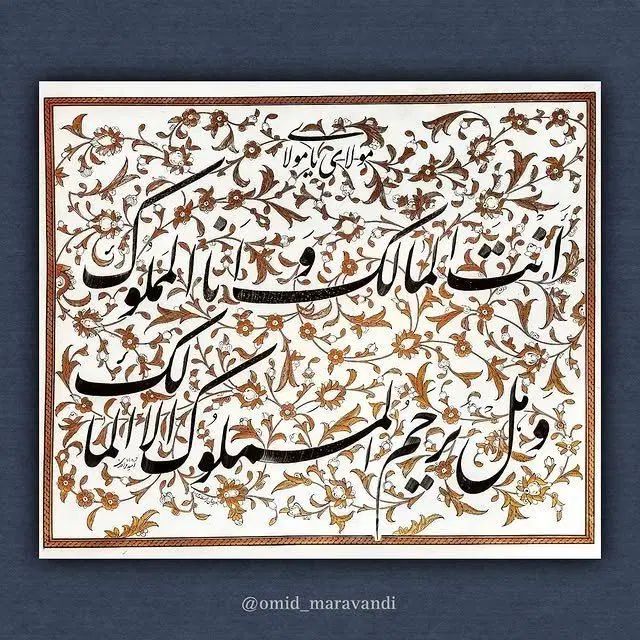 مولای یا مولای
أنت المالک و أنا المملوک
و هل یرحم المملوک الا المالک
@omid_maravandi